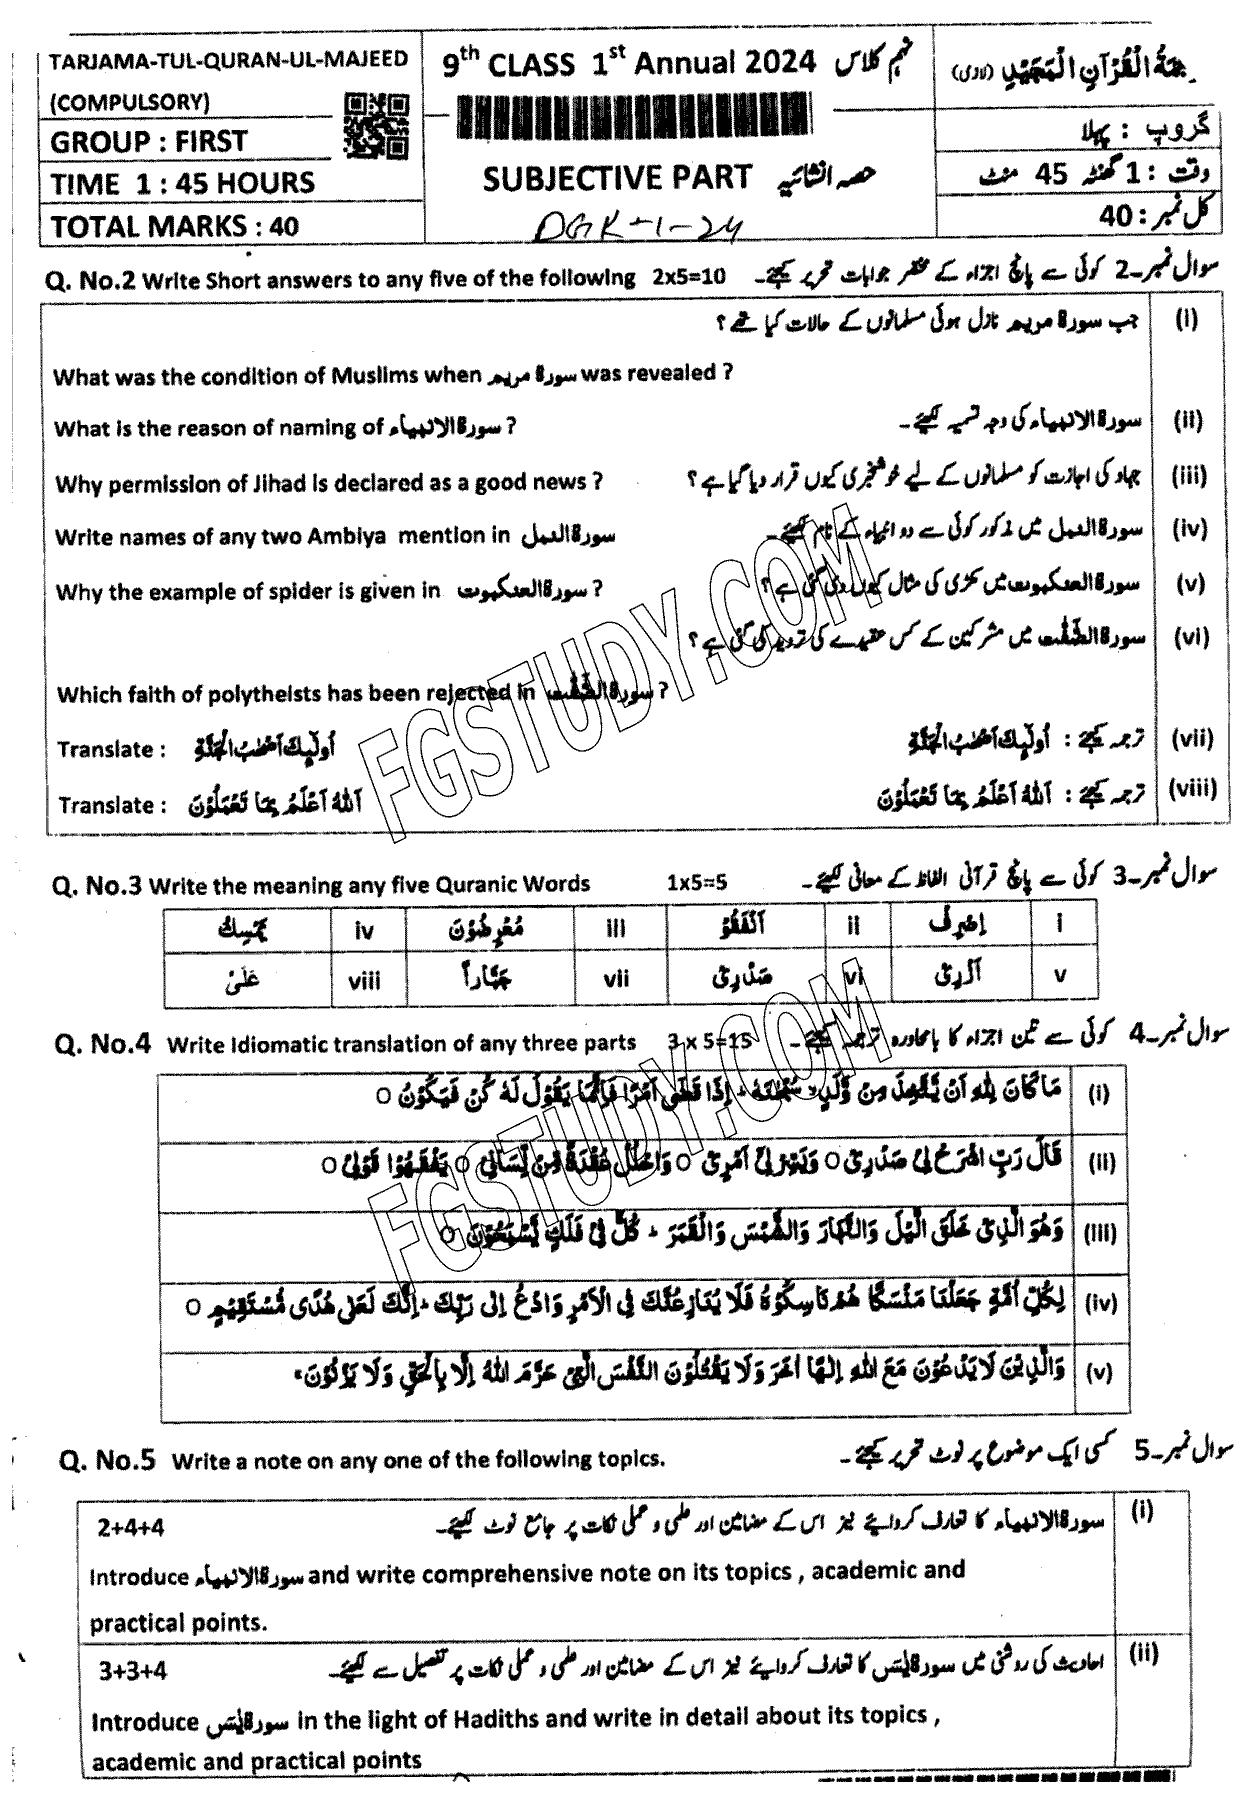 TARJAMA-TUL-QURAN-UL-MAJEED
(COMPULSORY)
GROUP : FIRST
TIME 1 : 45 HOURS
TOTAL MARKS : 40
9th CLASS 1st Annual 2024 نہم کلاس
SUBJECTIVE PART حصہ انشائیہ
DGK-1-24
جمۃُ الْقُرْآنِ الْمَجِیْدِ (لازمی)
گروپ : پہلا
وقت : 1 گھنٹہ 45 منٹ
کل نمبر : 40
Q. No.2 Write Short answers to any five of the following 2x5=10 سوال نمبر۔2 کوئی سے پانچ اجزاء کے مختصر جوابات تحریر کیجئے۔
(i) جب سورۃ مریم نازل ہوئی مسلمانوں کے حالات کیا تھے ؟
What was the condition of Muslims when سورۃ مریم was revealed ?
What is the reason of naming of سورۃالانبیاء ? (ii) سورۃالانبیاء کی وجہ تسمیہ لکھیئے۔
Why permission of Jihad is declared as a good news ? (iii) جہاد کی اجازت کو مسلمانوں کے لیے خوشخبری کیوں قرار دیا گیا ہے ؟
Write names of any two Ambiya mention in سورۃالنمل (iv) سورۃالنمل میں مذکور کوئی سے دو انبیاء کے نام لکھیئے۔
Why the example of spider is given in سورۃالعنکبوت ? (v) سورۃالعنکبوت میں مکڑی کی مثال کیوں دی گئی ہے ؟
(vi) سورۃالصّٰفّٰت میں مشرکین کے کس عقیدے کی تردید کی گئی ہے ؟
Which faith of polytheists has been rejected in سورۃالصّٰفّٰت ?
Translate : اُولٰٓئِكَ اَصْحٰبُ الْجَنَّةِ (vii) ترجمہ کیجئے : اُولٰٓئِكَ اَصْحٰبُ الْجَنَّةِ
Translate : اَللهُ اَعْلَمُ بِمَا تَعْمَلُوْنَ (viii) ترجمہ کیجئے : اَللهُ اَعْلَمُ بِمَا تَعْمَلُوْنَ
Q. No.3 Write the meaning any five Quranic Words 1x5=5 سوال نمبر۔3 کوئی سے پانچ قرآنی الفاظ کے معانی لکھیئے۔
i ii اَنْفَقُوْا iii مُعْرِضُوْنَ iv يُمْسِكُ
v اَزْرِیْ vi صَدْرِیْ vii جَبَّاراً viii عَلٰی
Q. No.4 Write Idiomatic translation of any three parts 3 x 5=15 سوال نمبر۔4 کوئی سے تین اجزاء کا بامحاورہ ترجمہ کیجئے۔
(i) مَا كَانَ لِلّٰهِ اَنْ يَّتَّخِذَ مِنْ وَّلَدٍ سُبْحٰنَهٗ ۔ اِذَا قَضٰى اَمْرًا فَاِنَّمَا يَقُوْلُ لَهٗ كُنْ فَيَكُوْنُ ○
(ii) قَالَ رَبِّ اشْرَحْ لِیْ صَدْرِیْ ○ وَيَسِّرْ لِیْٓ اَمْرِیْ ○ وَاحْلُلْ عُقْدَةً مِّنْ لِّسَانِیْ ○ يَفْقَهُوْا قَوْلِیْ ○
(iii) وَهُوَ الَّذِیْ خَلَقَ الَّيْلَ وَالنَّهَارَ وَالشَّمْسَ وَالْقَمَرَ ۔ كُلٌّ فِیْ فَلَكٍ يَّسْبَحُوْنَ ○
(iv) لِكُلِّ اُمَّةٍ جَعَلْنَا مَنْسَكًا هُمْ نَاسِكُوْهُ فَلَا يُنَازِعُنَّكَ فِی الْاَمْرِ وَادْعُ اِلٰى رَبِّكَ ۔ اِنَّكَ لَعَلٰى هُدًى مُّسْتَقِيْمٍ ○
(v) وَالَّذِيْنَ لَا يَدْعُوْنَ مَعَ اللهِ اِلٰهًا اٰخَرَ وَلَا يَقْتُلُوْنَ النَّفْسَ الَّتِیْ حَرَّمَ اللهُ اِلَّا بِالْحَقِّ وَلَا يَزْنُوْنَ
Q. No.5 Write a note on any one of the following topics. سوال نمبر۔5 کسی ایک موضوع پر نوٹ تحریر کیجئے۔
2+4+4 (i) سورۃالانبیاء کا تعارف کروایئے نیز اس کے مضامین اور علمی و عملی نکات پر جامع نوٹ لکھیئے۔
Introduce سورۃالانبیاء and write comprehensive note on its topics , academic and
practical points.
3+3+4 (ii) احادیث کی روشنی میں سورۃیٰسٓ کا تعارف کروایئے نیز اس کے مضامین اور علمی و عملی نکات پر تفصیل سے لکھیئے۔
Introduce سورۃیٰسٓ in the light of Hadiths and write in detail about its topics ,
academic and practical points
FGSTUDY.COM
FGSTUDY.COM